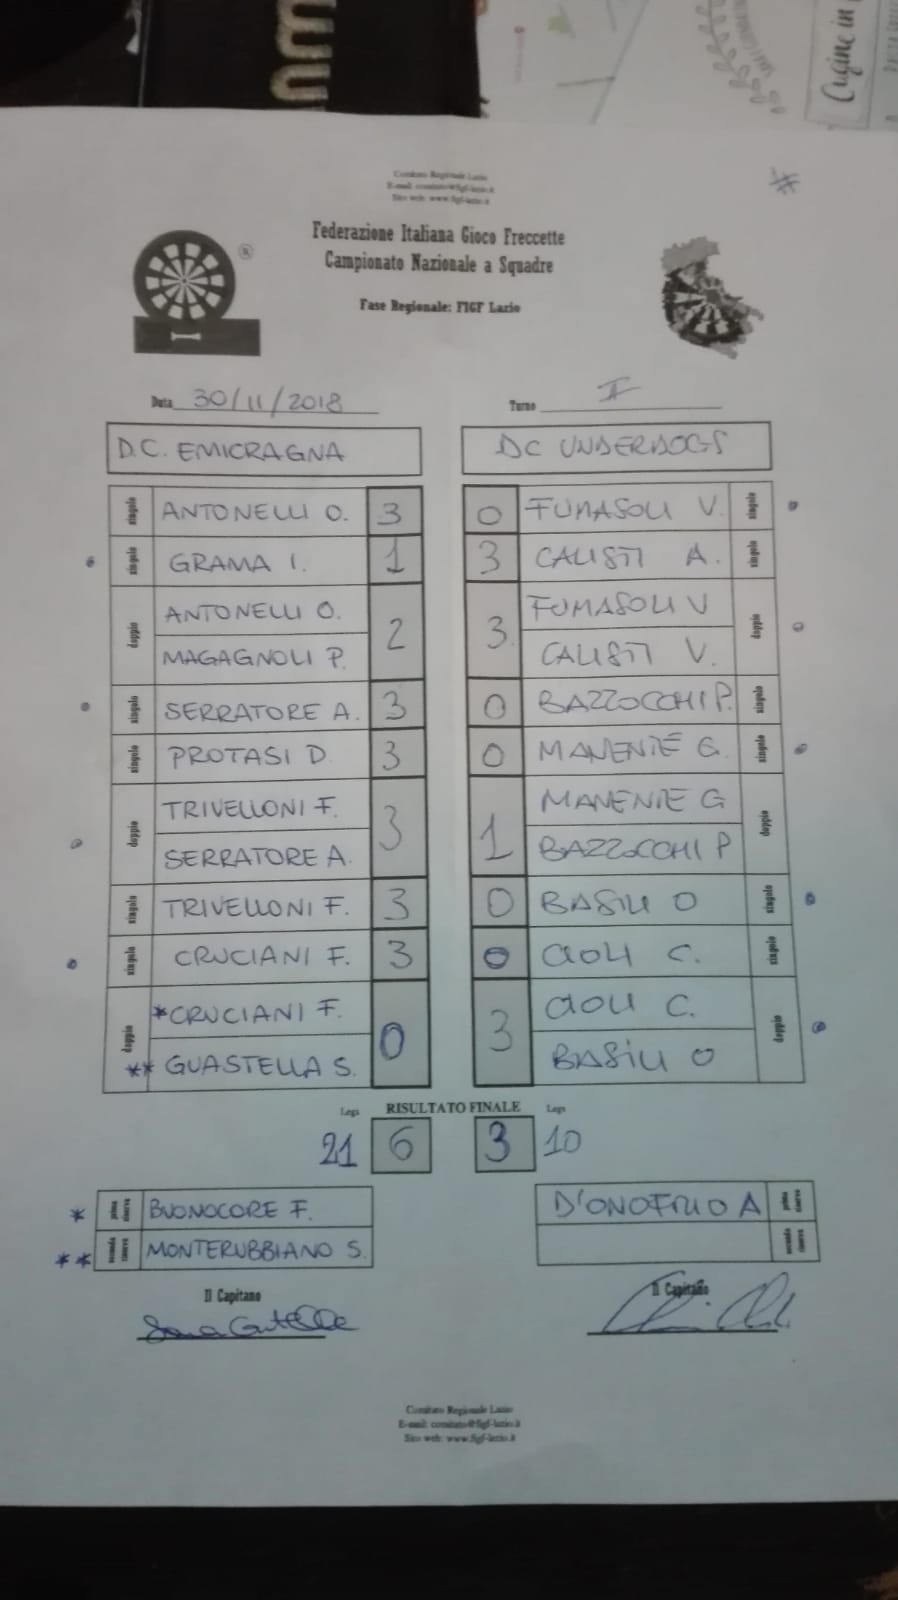 Cugine in
Comitato Regionale Lazio
E-mail: comitato@figf-lazio.it
Sito web: www.figf-lazio.it
Federazione Italiana Gioco Freccette
Campionato Nazionale a Squadre
Fase Regionale: FIGF Lazio
®
Data 30/11/2018 Turno II
D.C. EMICRAGNA DC UNDERDOGS
singolo ANTONELLI O. 3 0 FUMASOLI V. singolo
singolo GRAMA I. 1 3 CALISTI A. singolo
doppio ANTONELLI O. 2 3 FUMASOLI V doppio
MAGAGNOLI P. CALISTI V.
singolo SERRATORE A. 3 0 BAZZOCCHI P. singolo
singolo PROTASI D. 3 0 MANENTE G. singolo
doppio TRIVELLONI F. 3 1 MANENTE G doppio
SERRATORE A. BAZZOCCHI P
singolo TRIVELLONI F. 3 0 BASILI O singolo
singolo CRUCIANI F. 3 0 CIOLI C. singolo
doppio *CRUCIANI F. 0 3 CIOLI C. doppio
** GUASTELLA S. BASILI O
Legs RISULTATO FINALE Legs
21 6 3 10
* prima riserva BUONOCORE F. D'ONOFRIO A prima riserva
** seconda riserva MONTERUBBIANO S. seconda riserva
Il Capitano Il Capitano
Comitato Regionale Lazio
E-mail: comitato@figf-lazio.it
Sito web: www.figf-lazio.it